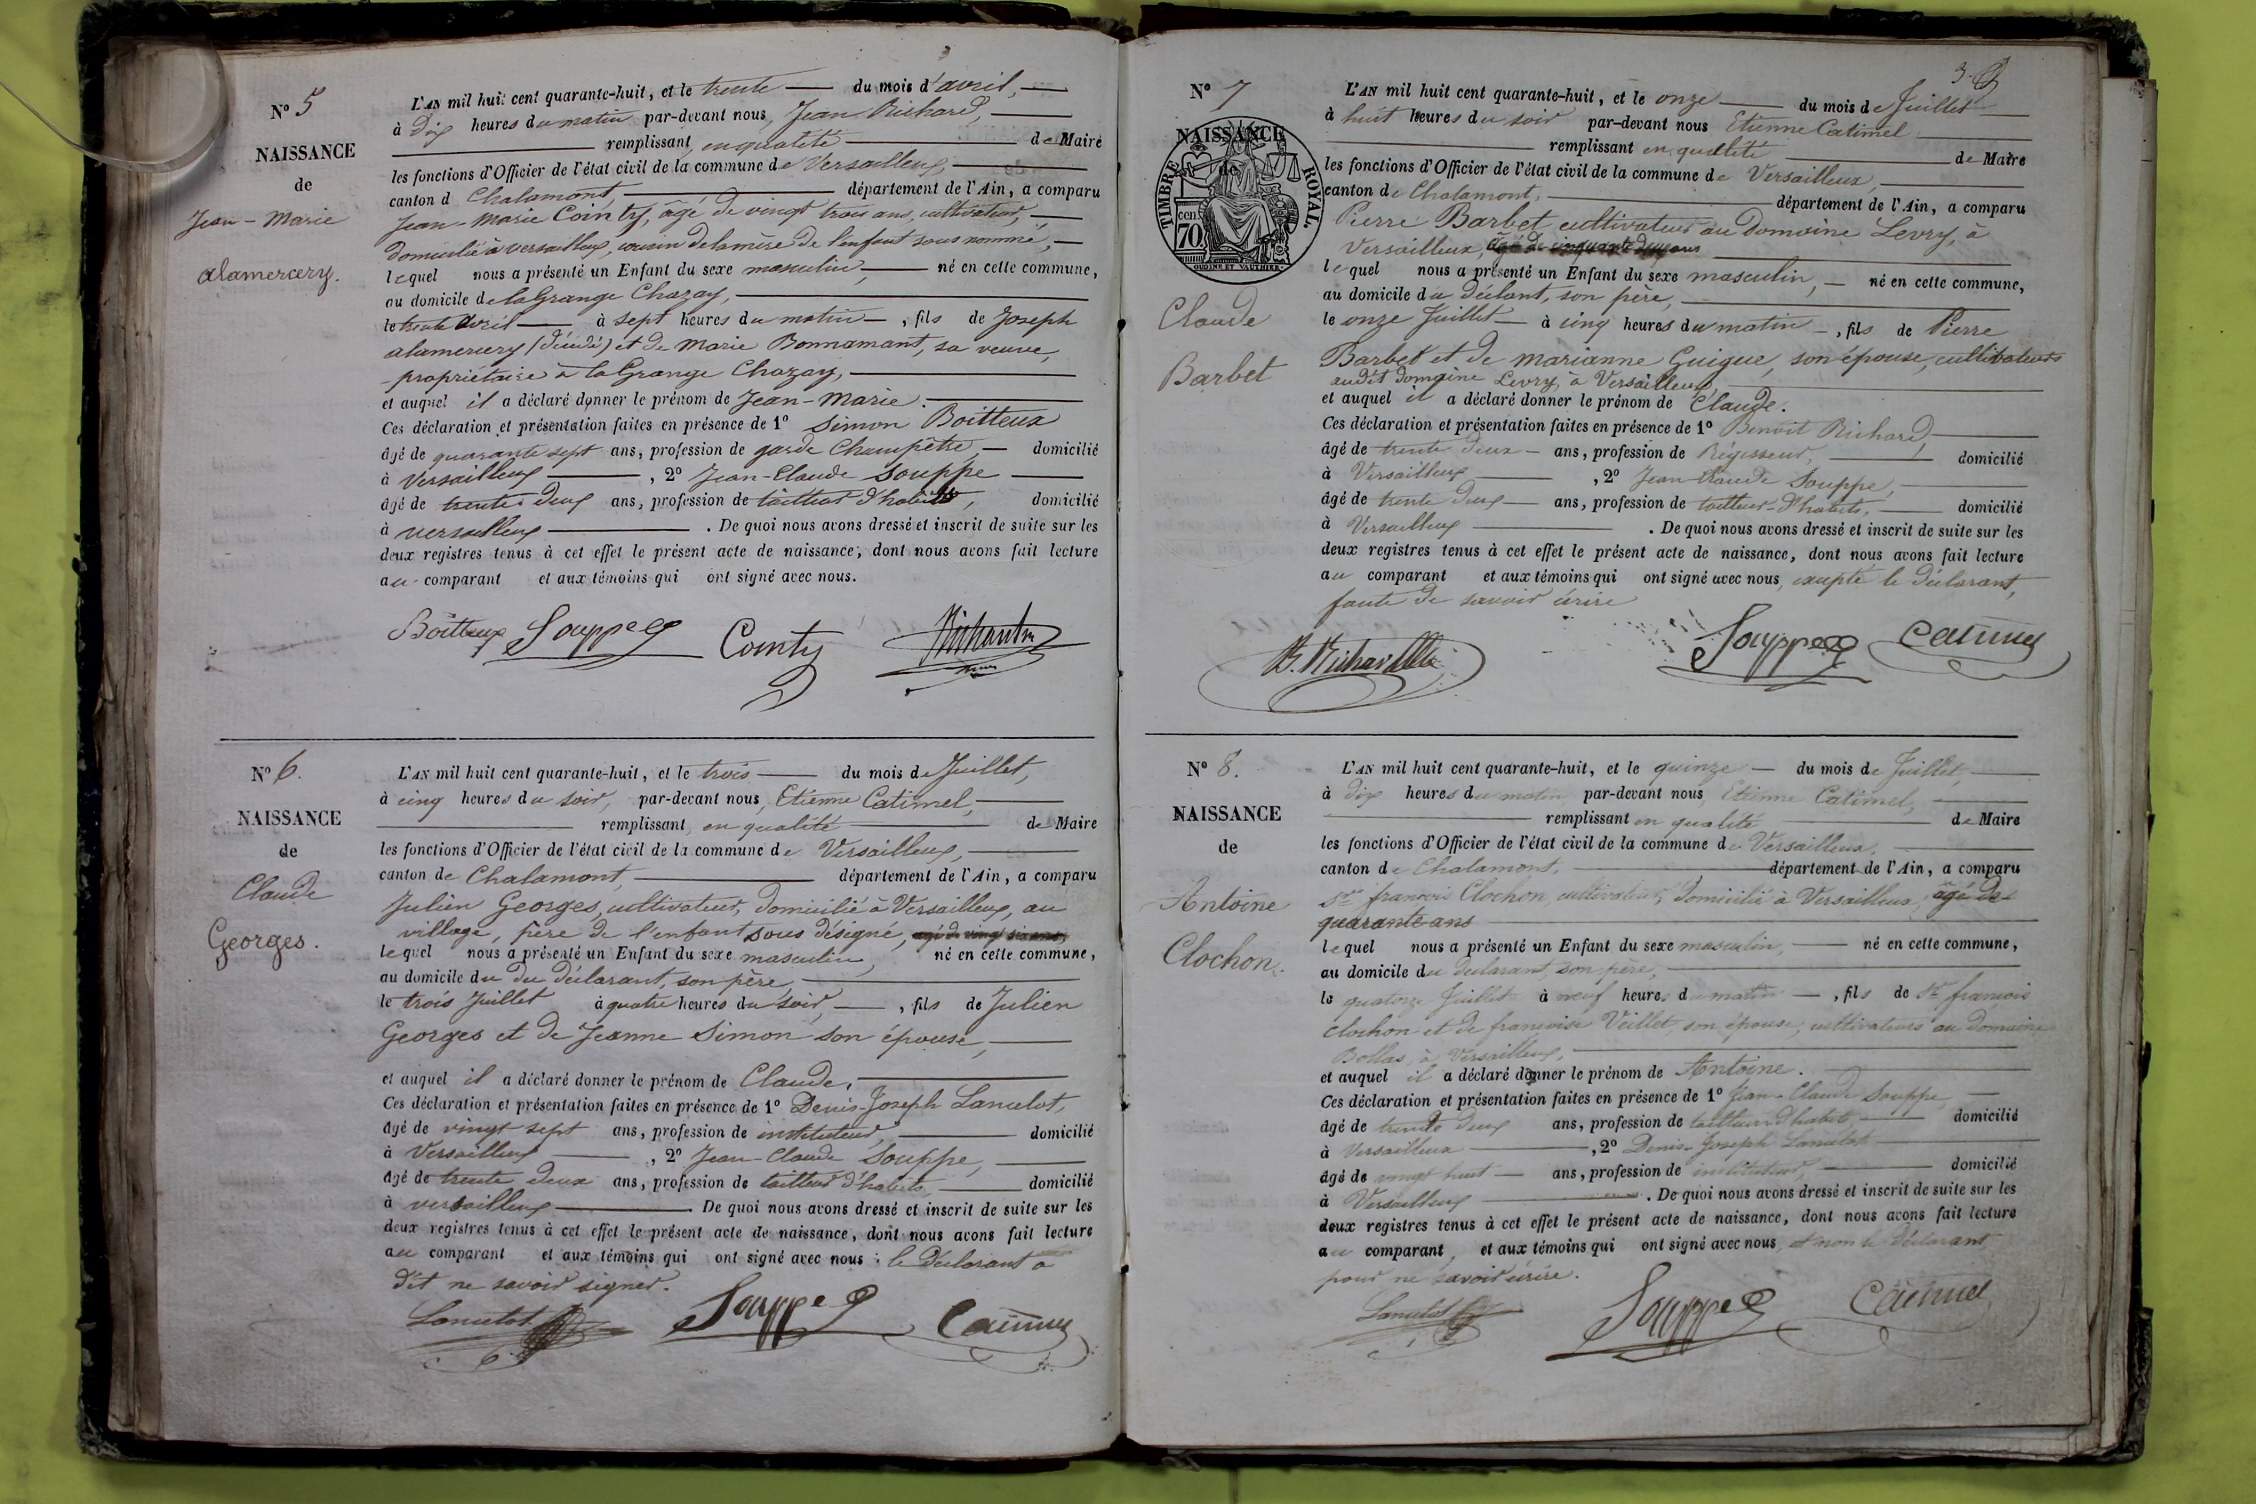 N° 5
NAISSANCE
de
Jean-Marie
alamercery.
L'AN mil huit cent quarante-huit, et le trente du mois d'avril,
à Dix heures du matin par-devant nous, Jean Richard,
remplissant en qualité de Maire
les fonctions d'Officier de l'état civil de la commune de Versailleux,
canton d Chalamont, département de l'Ain, a comparu
Jean-Marie Cointy, âgé de vingt trois ans, cultivateur,
domicilié à versailleux, cousin de la mère de l'enfant sous nommé,
lequel nous a présenté un Enfant du sexe masculin, né en cette commune,
au domicile de la Grange Chazay,
le trente avril à sept heures du matin, fils de Joseph
alamercery (décédé) et de Marie Bonnamant, sa veuve,
propriétaire à la Grange Chazay,
et auquel il a déclaré donner le prénom de Jean-Marie.
Ces déclaration et présentation faites en présence de 1° Simon Boitteux
âgé de quarante sept ans, profession de garde Champêtre, domicilié
à Versailleux, 2° Jean-Claude Souppe
âgé de trente deux ans, profession de tailleur d'habits, domicilié
à versailleux. De quoi nous avons dressé et inscrit de suite sur les
deux registres tenus à cet effet le présent acte de naissance, dont nous avons fait lecture
au comparant et aux témoins qui ont signé avec nous.
Boitteux Souppe Cointy
N° 6.
NAISSANCE
de
Claude
Georges.
L'AN mil huit cent quarante-huit, et le trois du mois de Juillet,
à cinq heures du soir, par-devant nous, Etienne Catimel,
remplissant en qualité de Maire
les fonctions d'Officier de l'état civil de la commune de Versailleux,
canton de Chalamont, département de l'Ain, a comparu
Julien Georges, cultivateur, domicilié à Versailleux, au
village, père de l'enfant sous désigné, âgé de vingt six ans,
lequel nous a présenté un Enfant du sexe masculin, né en cette commune,
au domicile du du déclarant, son père,
le trois Juillet à quatre heures du soir, fils de Julien
Georges et de Jeanne Simon son épouse,
et auquel il a déclaré donner le prénom de Claude.
Ces déclaration et présentation faites en présence de 1° Denis-Joseph Lancelot,
âgé de vingt sept ans, profession de instituteur, domicilié
à Versailleux, 2° Jean-Claude Souppe,
âgé de trente deux ans, profession de tailleur d'habits, domicilié
à versailleux. De quoi nous avons dressé et inscrit de suite sur les
deux registres tenus à cet effet le présent acte de naissance, dont nous avons fait lecture
au comparant et aux témoins qui ont signé avec nous : le déclarant a
dit ne savoir signer.
Lancelot Souppe Catimel
3.
N° 7
NAISSANCE
de
TIMBRE ROYAL.
70 cen
OUDINE ET VAUTHIER
Claude
Barbet
L'AN mil huit cent quarante-huit, et le onze du mois de Juillet
à huit heures du soir par-devant nous Etienne Catimel
remplissant en qualité de Maire
les fonctions d'Officier de l'état civil de la commune de Versailleux,
canton de Chalamont, département de l'Ain, a comparu
Pierre Barbet cultivateur au Domaine Levry, à
Versailleux, âgé de cinquante deux ans
lequel nous a présenté un Enfant du sexe masculin, né en cette commune,
au domicile du déclant, son père,
le onze Juillet à cinq heures du matin, fils de Pierre
Barbet et de marianne Guigue, son épouse, cultivateurs
audit Domaine Levry, à Versailleux,
et auquel il a déclaré donner le prénom de Claude.
Ces déclaration et présentation faites en présence de 1° Benoit Richard,
âgé de trente deux ans, profession de Régisseur, domicilié
à Versailleux, 2° Jean Claude Souppe,
âgé de trente deux ans, profession de tailleur d'habits, domicilié
à Versailleux. De quoi nous avons dressé et inscrit de suite sur les
deux registres tenus à cet effet le présent acte de naissance, dont nous avons fait lecture
au comparant et aux témoins qui ont signé avec nous, excepté le déclarant,
faute de savoir écrire
B. Richard Souppe Catimel
N° 8.
NAISSANCE
de
Antoine
Clochon.
L'AN mil huit cent quarante-huit, et le quinze du mois de Juillet,
à dix heures du matin par-devant nous Etienne Catimel,
remplissant en qualité de Maire
les fonctions d'Officier de l'état civil de la commune de Versailleux,
canton de Chalamont, département de l'Ain, a comparu
françois Clochon, cultivateur, domicilié à Versailleux, âgé de
quarante ans
lequel nous a présenté un Enfant du sexe masculin, né en cette commune,
au domicile du déclarant, son père,
le quatorze Juillet à neuf heures du matin, fils de françois
Clochon et de françoise Veillet, son épouse, cultivateurs au Domaine
Bollas, à Versailleux,
et auquel il a déclaré donner le prénom de Antoine.
Ces déclaration et présentation faites en présence de 1° Jean-Claude Souppe,
âgé de trente deux ans, profession de tailleur d'habits domicilié
à Versailleux, 2° Denis-Joseph Lancelot
âgé de vingt huit ans, profession de instituteur, domicilié
à Versailleux. De quoi nous avons dressé et inscrit de suite sur les
deux registres tenus à cet effet le présent acte de naissance, dont nous avons fait lecture
au comparant, et aux témoins qui ont signé avec nous, et non le déclarant
pour ne savoir écrire.
Lancelot Souppe Catimel